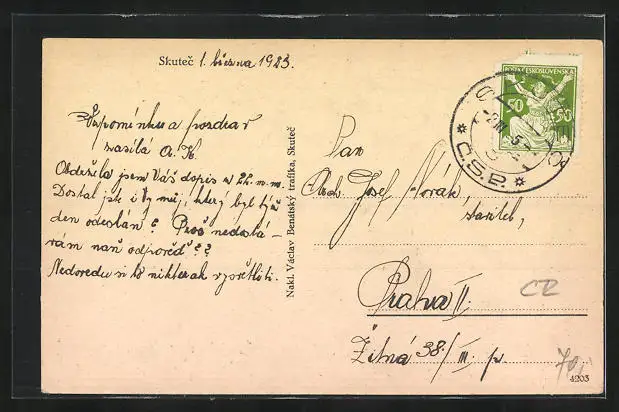 Skuteč 1. března 1923.
Vzpomínku a pozdrav
zasílá A. K.
Obdržela jsem Váš dopis z 22. m. m.
Dostal jste i Vy můj, který byl týž
den odeslán? Proč nedostá-
vám naň odpověď??
Nedovedu si to nikterak vysvětliti.
Nakl. Václav Benátský trafika, Skuteč
POŠTA ČESKOSLOVENSKÁ
50 50
Pan
Josef Novák,
stavitel,
Praha II.
Žitná 38/III. p.
Č.S.P.
CR
70,-
4203